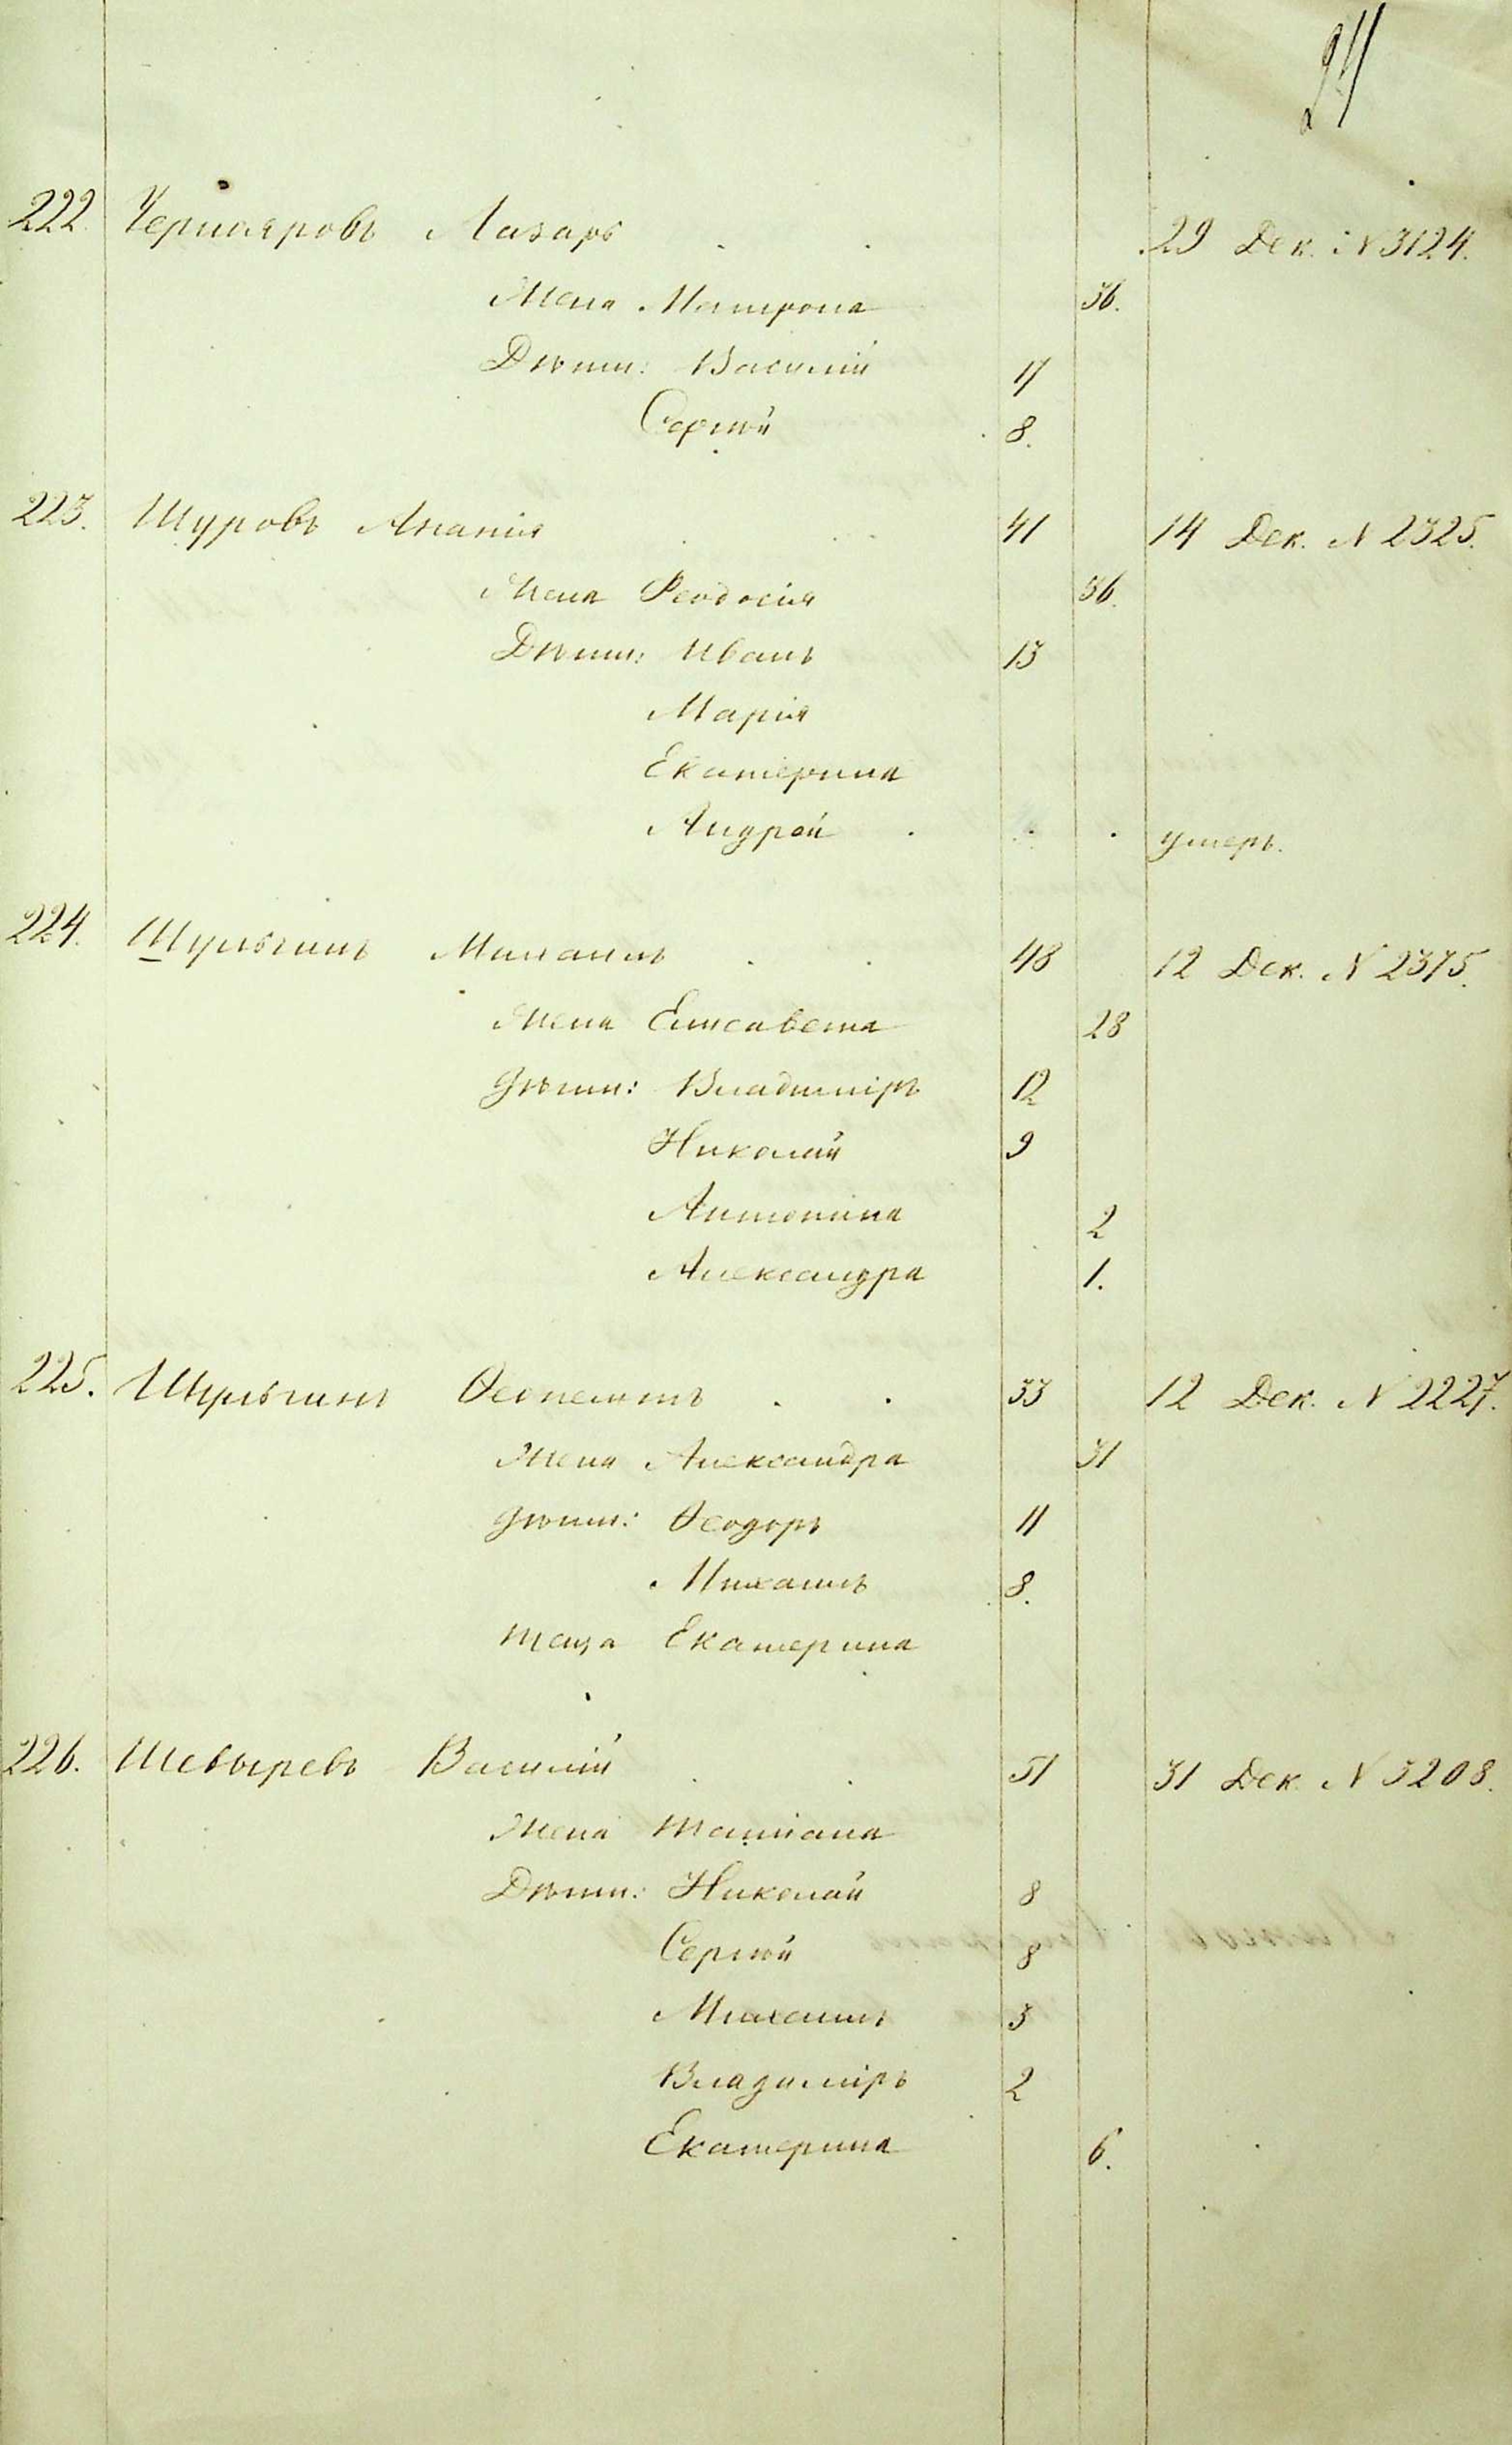 24
222. Чернояровъ Лазарь 29 Дек. N 3124.
Жена Матрона 36.
Дѣти: Василій 17
Сергѣй 8.
223. Шуровъ Ананія 41 14 Дек. N 2325.
Жена Феодосія 36.
Дѣти: Иванъ 13
Марія
Екатерина
Андрей умеръ.
224. Шульгинъ Михаилъ 48 12 Дек. N 2375.
Жена Елисавета 28
Дѣти: Владиміръ 12
Николай 9
Антонина 2
Александра 1.
225. Шульгинъ Ѳеопемптъ 33 12 Дек. N 2227.
Жена Александра 31
Дѣти: Ѳеодоръ 11
Михаилъ 8.
Теща Екатерина
226. Шевыревъ Василій 51 31 Дек. N 3208.
Жена Татіана
Дѣти: Николай 8
Сергѣй 8
Михаилъ 3
Владиміръ 2
Екатерина 6.